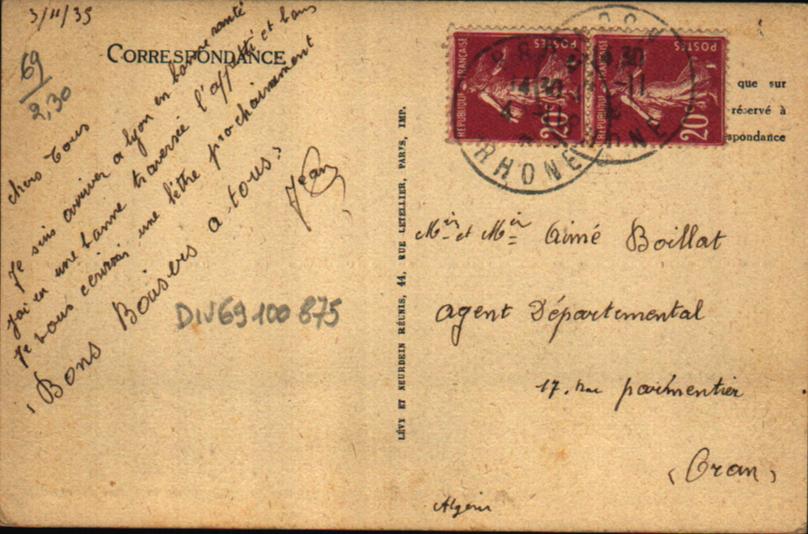 3/11/35
CORRESPONDANCE
69
2,30
chers tous
Je suis arriver a lyon en bonne santé
j'ai eu une bonne traversée l'appetit et bon
Je vous écrirai une lettre prochainement
Bons Baisers a tous
Jean
DIV69100875
LÉVY ET NEURDEIN RÉUNIS, 44, RUE LETELLIER, PARIS, IMP.
RÉPUBLIQUE FRANÇAISE
POSTES
20c
RÉPUBLIQUE FRANÇAISE
POSTES
20c
14 30
RHONE
que sur
réservé à
spondance
Aimé Boillat
agent Départemental
17. rue parmentier
(Oran)
Algérie